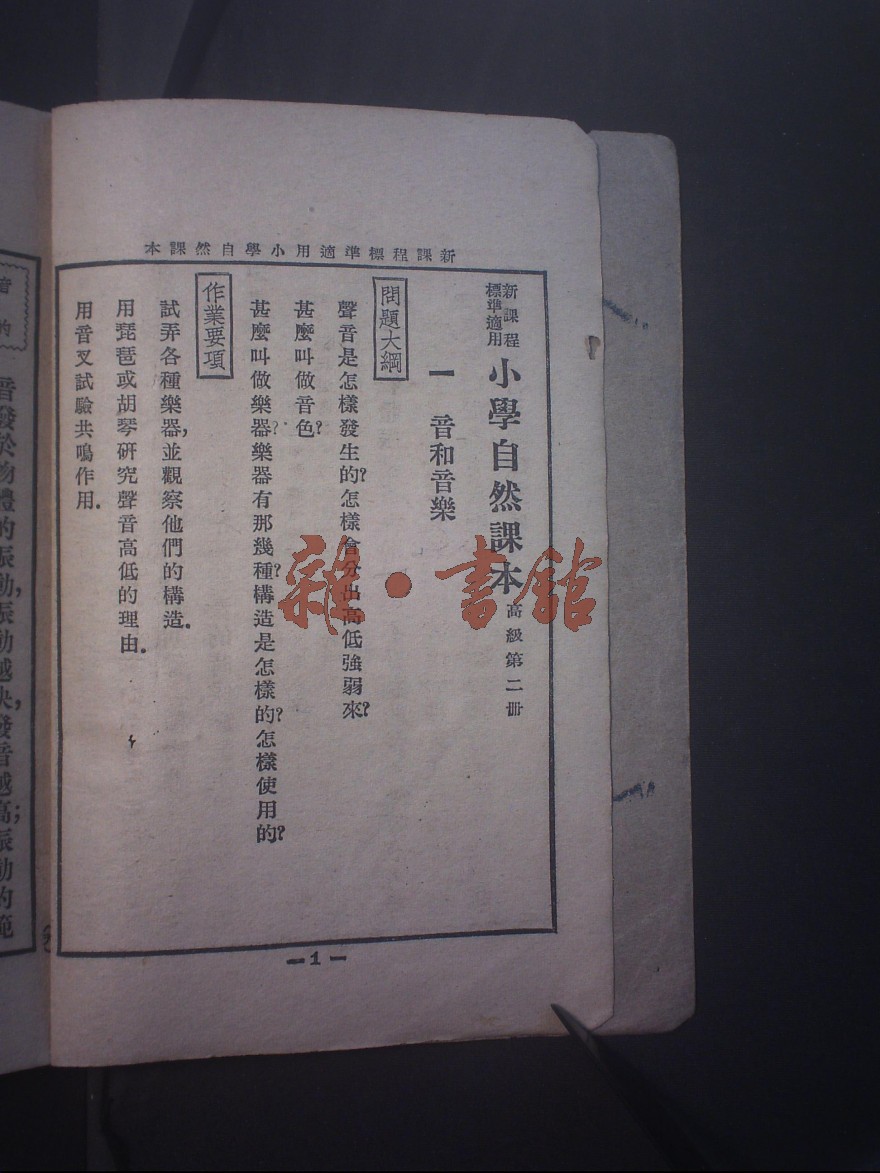 新課程標準適用小學自然課本
新課程標準適用
小學自然課本 高級第二册
一　音和音樂
問題大綱
聲音是怎樣發生的?怎樣會分出高低強弱來?
甚麼叫做音色?
甚麼叫做樂器?樂器有那幾種?構造是怎樣的?怎樣使用的?
作業要項
試弄各種樂器,並觀察他們的構造.
用琵琶或胡琴研究聲音高低的理由.
用音叉試驗共鳴作用.
—1—
音的
音發於物體的振動,振動越快,發音越高;振動的範
雜·書館